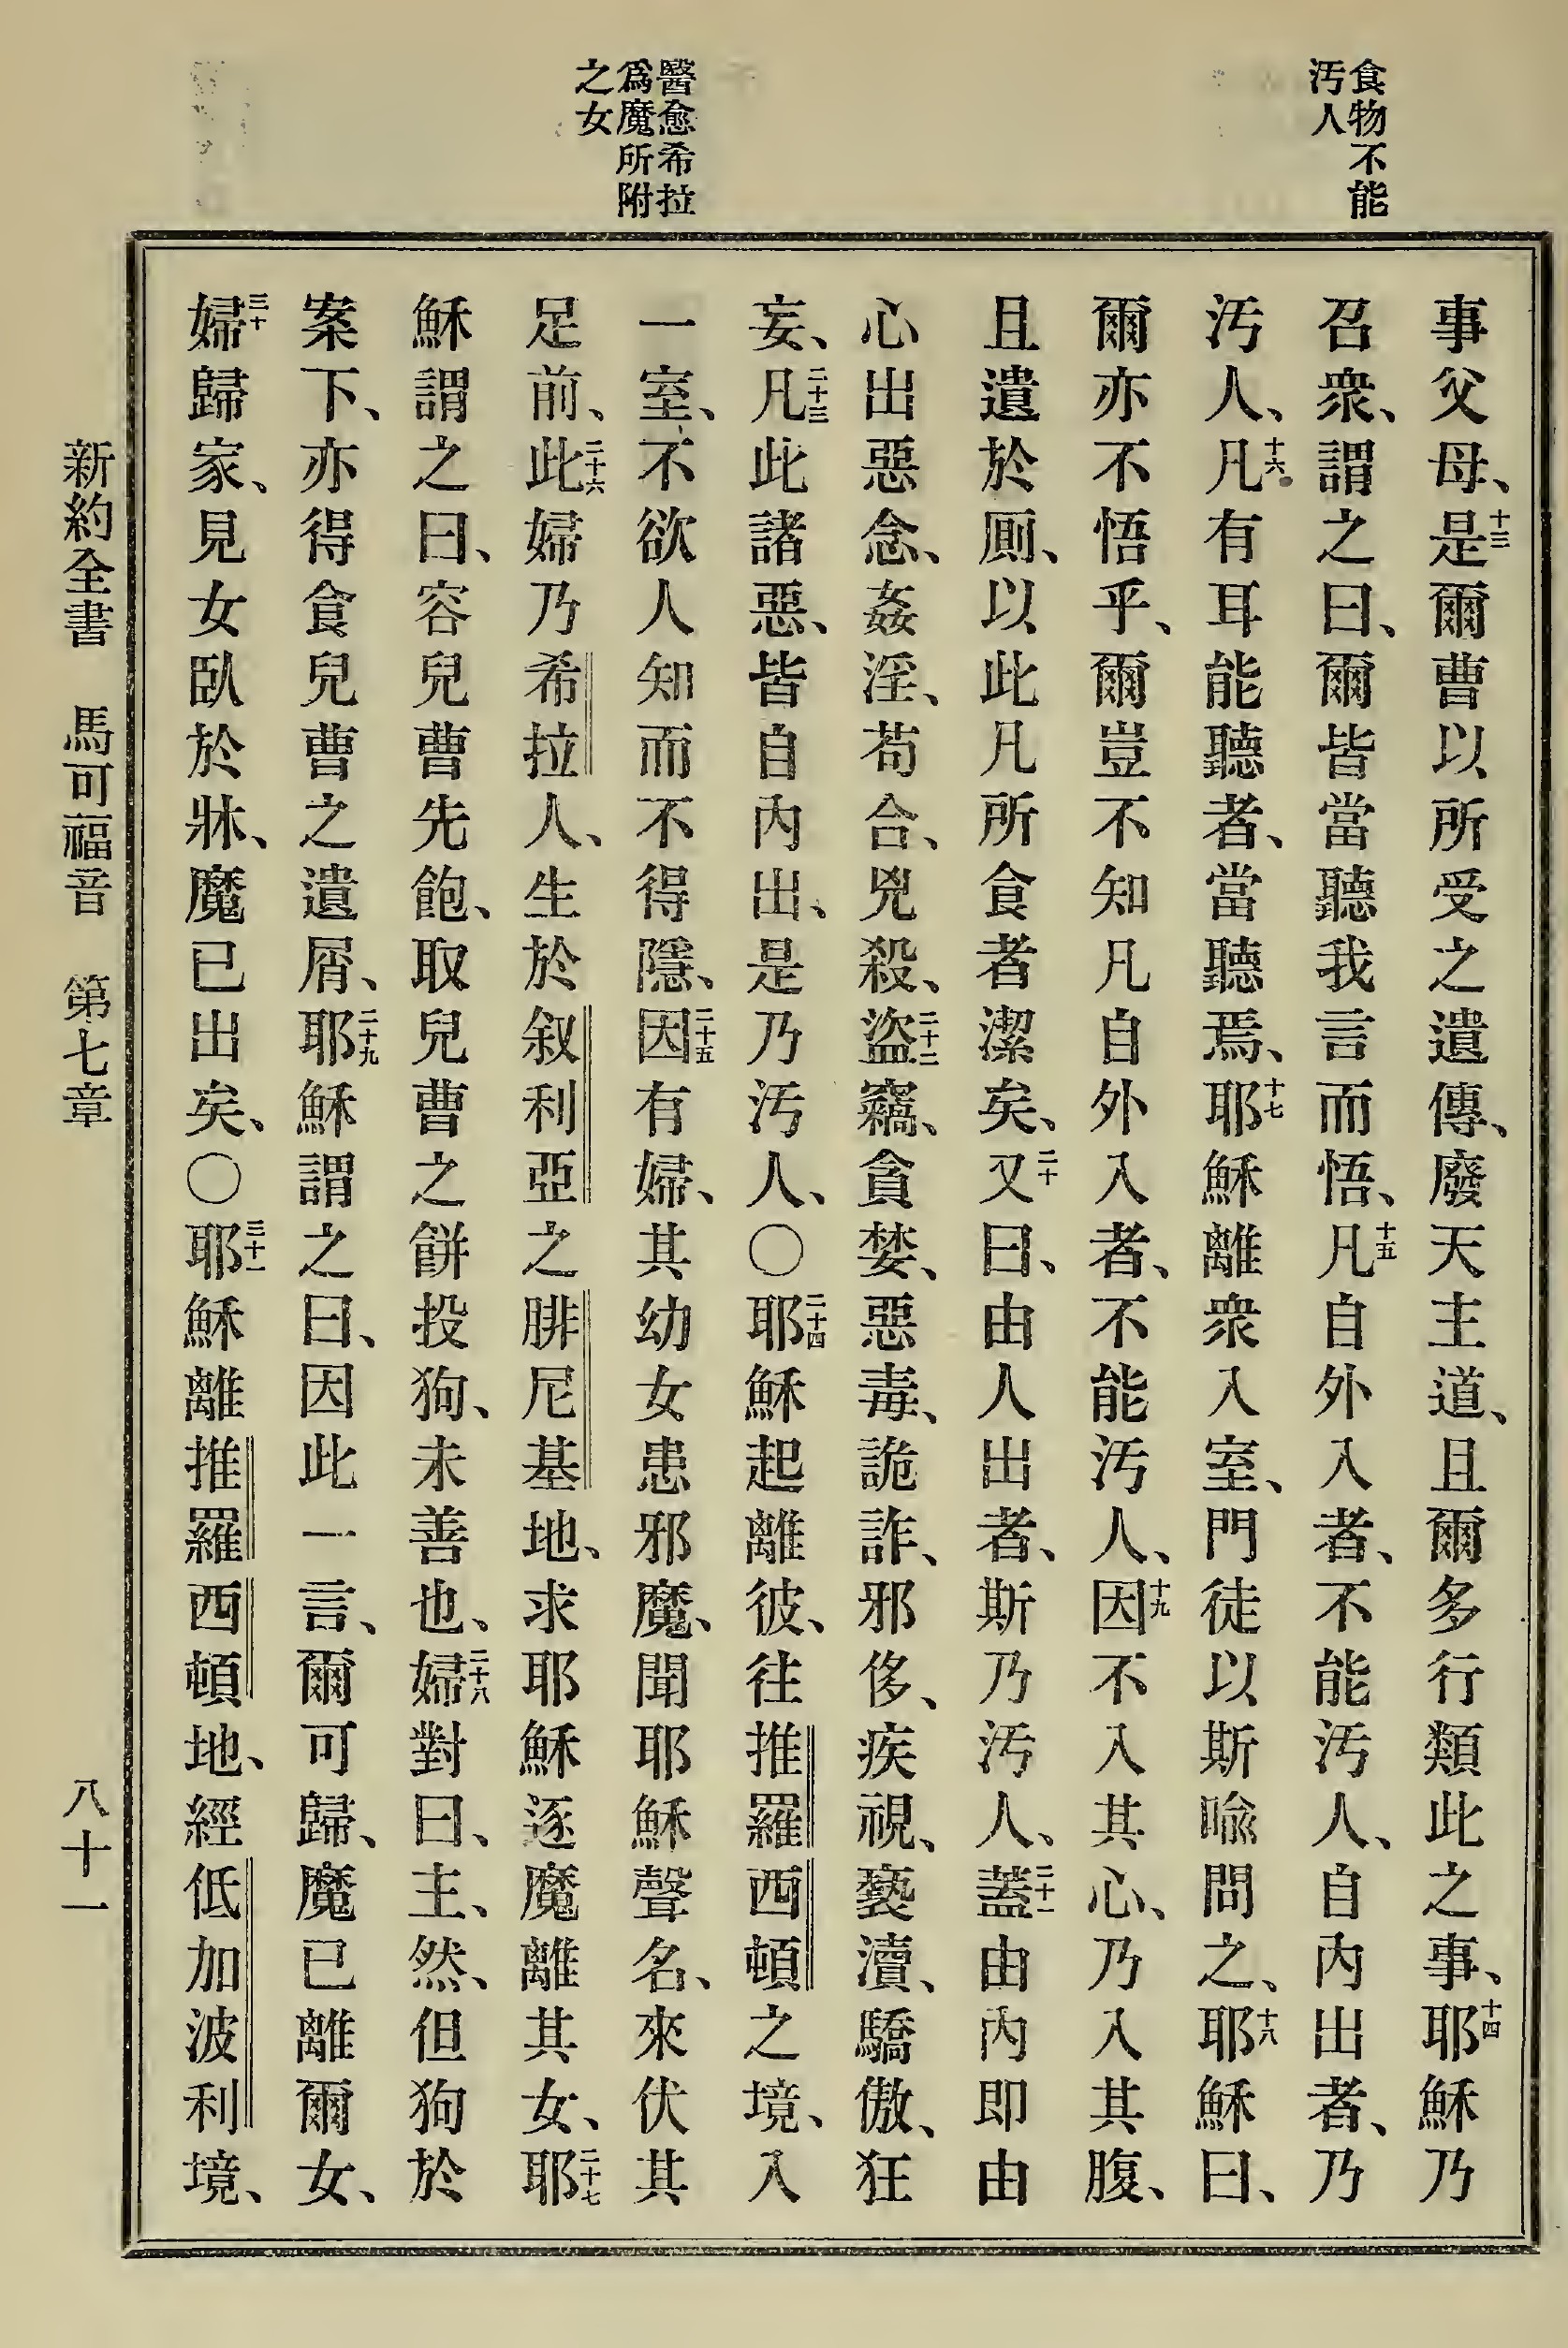 食物不能
汚人
醫愈希拉
爲魔所附
之女
事父母、十三是爾曹以所受之遺傳、廢天主道、且爾多行類此之事、十四耶穌乃
召衆、謂之曰、爾皆當聽我言而悟、十五凡自外入者、不能汚人、自內出者、乃
汚人、十六凡有耳能聽者、當聽焉、十七耶穌離衆入室、門徒以斯喩問之、十八耶穌曰、
爾亦不悟乎、爾豈不知凡自外入者、不能汚人、十九因不入其心、乃入其腹、
且遺於厠、以此凡所食者潔矣、二十又曰、由人出者、斯乃汚人、二十一蓋由內卽由
心出惡念、姦淫、苟合、兇殺、二十二盜竊、貪婪、惡毒、詭詐、邪侈、疾視、褻瀆、驕傲、狂
妄、二十三凡此諸惡、皆自內出、是乃汚人、○二十四耶穌起離彼、往推羅西頓之境、入
一室、不欲人知而不得隱、二十五因有婦、其幼女患邪魔、聞耶穌聲名、來伏其
足前、二十六此婦乃希拉人、生於叙利亞之腓尼基地、求耶穌逐魔離其女、二十七耶
穌謂之曰、容兒曹先飽、取兒曹之餅投狗、未善也、二十八婦對曰、主、然、但狗於
案下、亦得食兒曹之遺屑、二十九耶穌謂之曰、因此一言、爾可歸、魔已離爾女、
三十婦歸家、見女臥於牀、魔已出矣、○三十一耶穌離推羅西頓地、經低加波利境、
新約全書 馬可福音 第七章 八十一